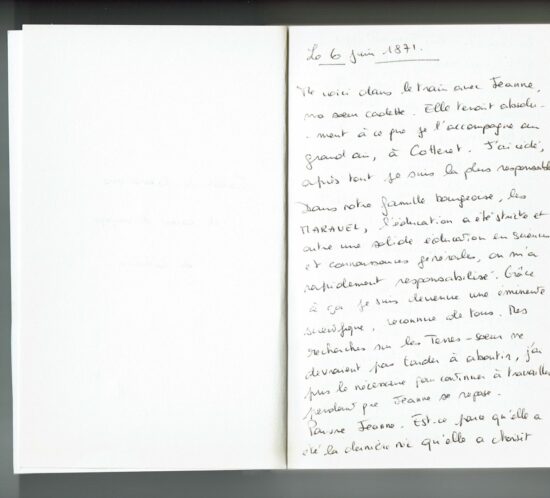 Le 6 juin 1871.
Me voici dans le train avec Jeanne,
ma sœur cadette. Elle tenait absolu-
-ment à ce que je l'accompagne au
grand air, à Cotteret. J'ai cédé,
après tout je suis la plus responsable
Dans notre famille bourgeoise, les
MARAVEL, l'éducation a été stricte et
outre une solide education en sciences
et connaissances générales, on m'a
rapidement responsabilisé. Grâce
à ça je suis devenue une éminente
scientifique, reconnue de tous. Mes
recherches sur les Terres-sœur ne
devraient pas tarder à aboutir, j'ai
pris le nécessaire pour continuer à travailler
pendant que Jeanne se repose.
Pauvre Jeanne. Est-ce parce qu'elle a
été la dernière née qu'elle a choisit